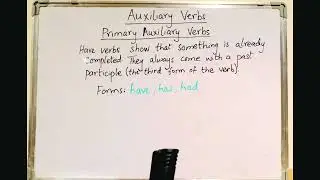 Auxiliary Verbs
Primary Auxiliary Verbs
Have verbs show that something is already
completed They always come with a past
participle (the third form of the verb).
Forms: have, has, had